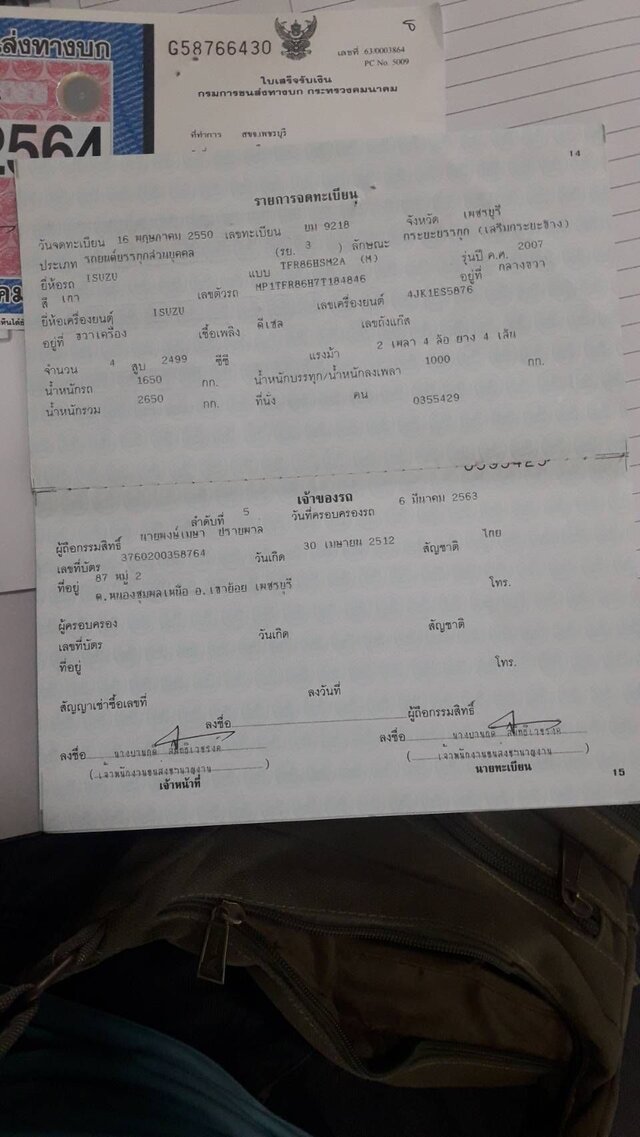 ส่งทางบก
2564
G58766430
เลขที่ 63/0003864
PC No. 5009
ใบเสร็จรับเงิน
กรมการขนส่งทางบก กระทรวงคมนาคม
ที่ทำการ สขจ.เพชรบุรี
14
รายการจดทะเบียน
วันจดทะเบียน 16 พฤษภาคม 2550 เลขทะเบียน ยม 9218 จังหวัด เพชรบุรี
ประเภท รถยนต์บรรทุกส่วนบุคคล (รย. 3 ) ลักษณะ กระยะบรรทุก (เสริมกระยะข้าง)
ยี่ห้อรถ ISUZU แบบ TFR86HSM2A (M) รุ่นปี ค.ศ. 2007
สี เทา เลขตัวรถ MP1TFR86H7T184846 อยู่ที่ กลางขวา
ยี่ห้อเครื่องยนต์ ISUZU เลขเครื่องยนต์ 4JK1ES5876
อยู่ที่ ขวาเครื่อง เชื้อเพลิง ดีเซล เลขถังแก๊ส
จำนวน 4 สูบ 2499 ซีซี แรงม้า 2 เพลา 4 ล้อ ยาง 4 เส้น
น้ำหนักรถ 1650 กก. น้ำหนักบรรทุก/น้ำหนักลงเพลา 1000 กก.
น้ำหนักรวม 2650 กก. ที่นั่ง คน 0355429
เจ้าของรถ
ลำดับที่ 5 วันที่ครอบครองรถ 6 มีนาคม 2563
ผู้ถือกรรมสิทธิ์ นายพงษ์เมษา ปรายพาล
เลขที่บัตร 3760200358764 วันเกิด 30 เมษายน 2512 สัญชาติ ไทย
ที่อยู่ 87 หมู่ 2 โทร.
ต.หนองชุมพลเหนือ อ.เขาย้อย เพชรบุรี
ผู้ครอบครอง
เลขที่บัตร วันเกิด สัญชาติ
ที่อยู่ โทร.
สัญญาเช่าซื้อเลขที่ ลงวันที่
ลงชื่อ ผู้ถือกรรมสิทธิ์
ลงชื่อ ลงชื่อ
(เจ้าพนักงานขนส่งชำนาญงาน) (เจ้าพนักงานขนส่งชำนาญงาน)
เจ้าหน้าที่ นายทะเบียน
15